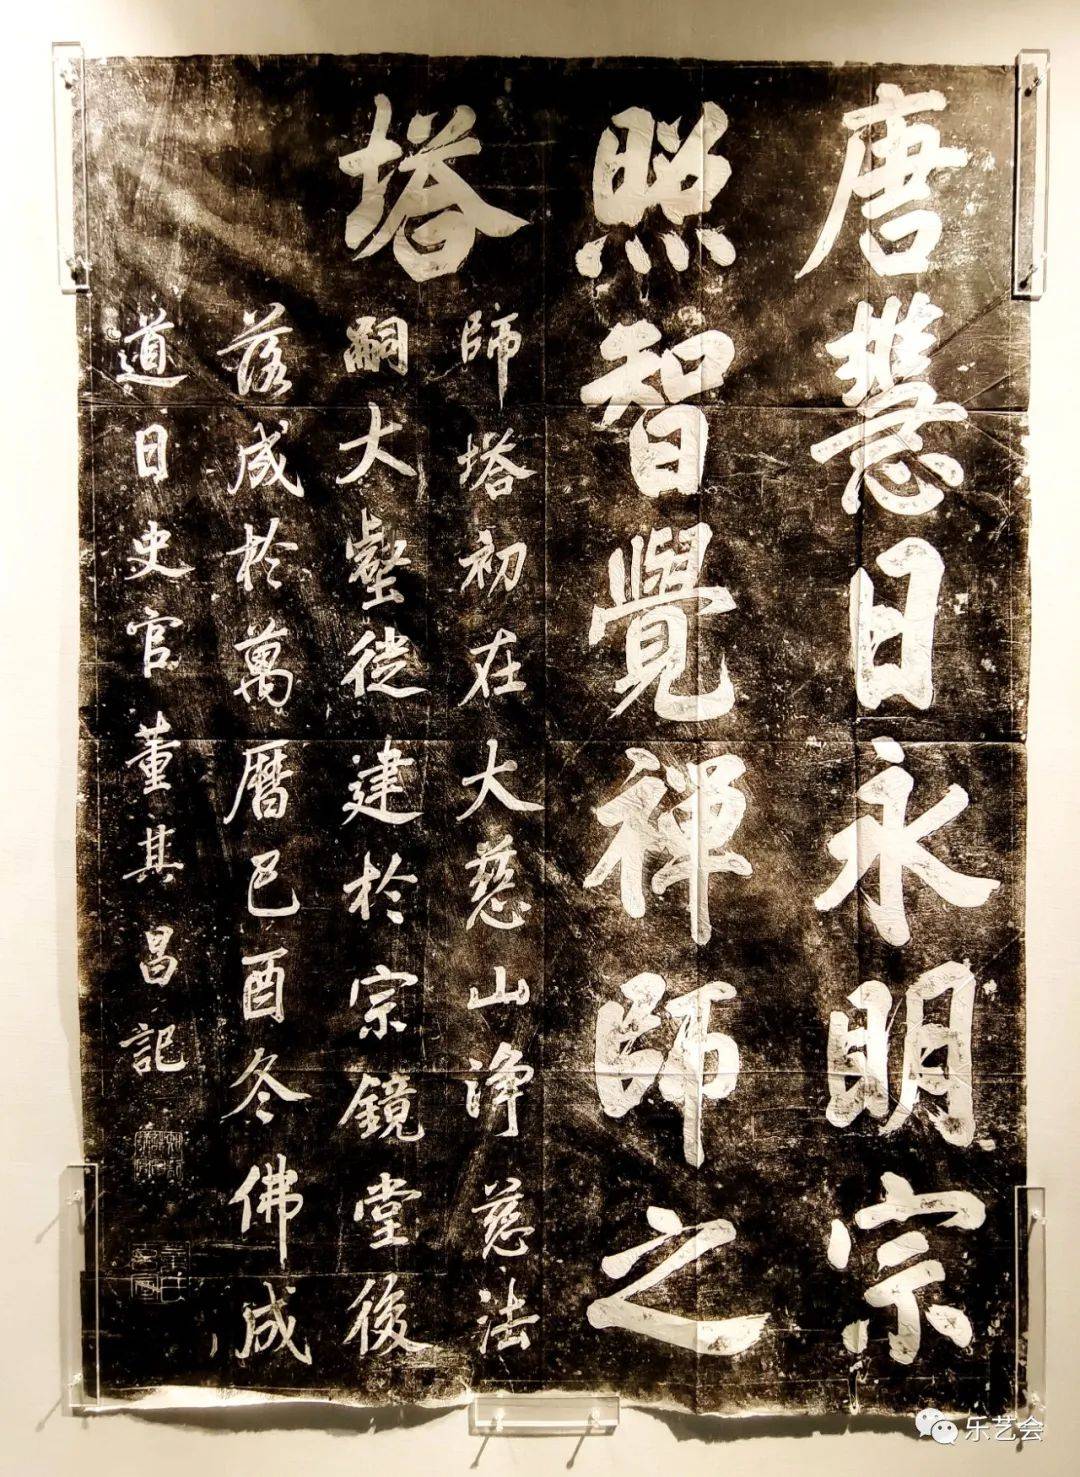 唐慧日永明宗
照智覺禪師之
塔
師塔初在大慈山淨慈法
嗣大壑徙建於宗鏡堂後
落成於萬曆己酉冬佛成
道日史官董其昌記
乐艺会